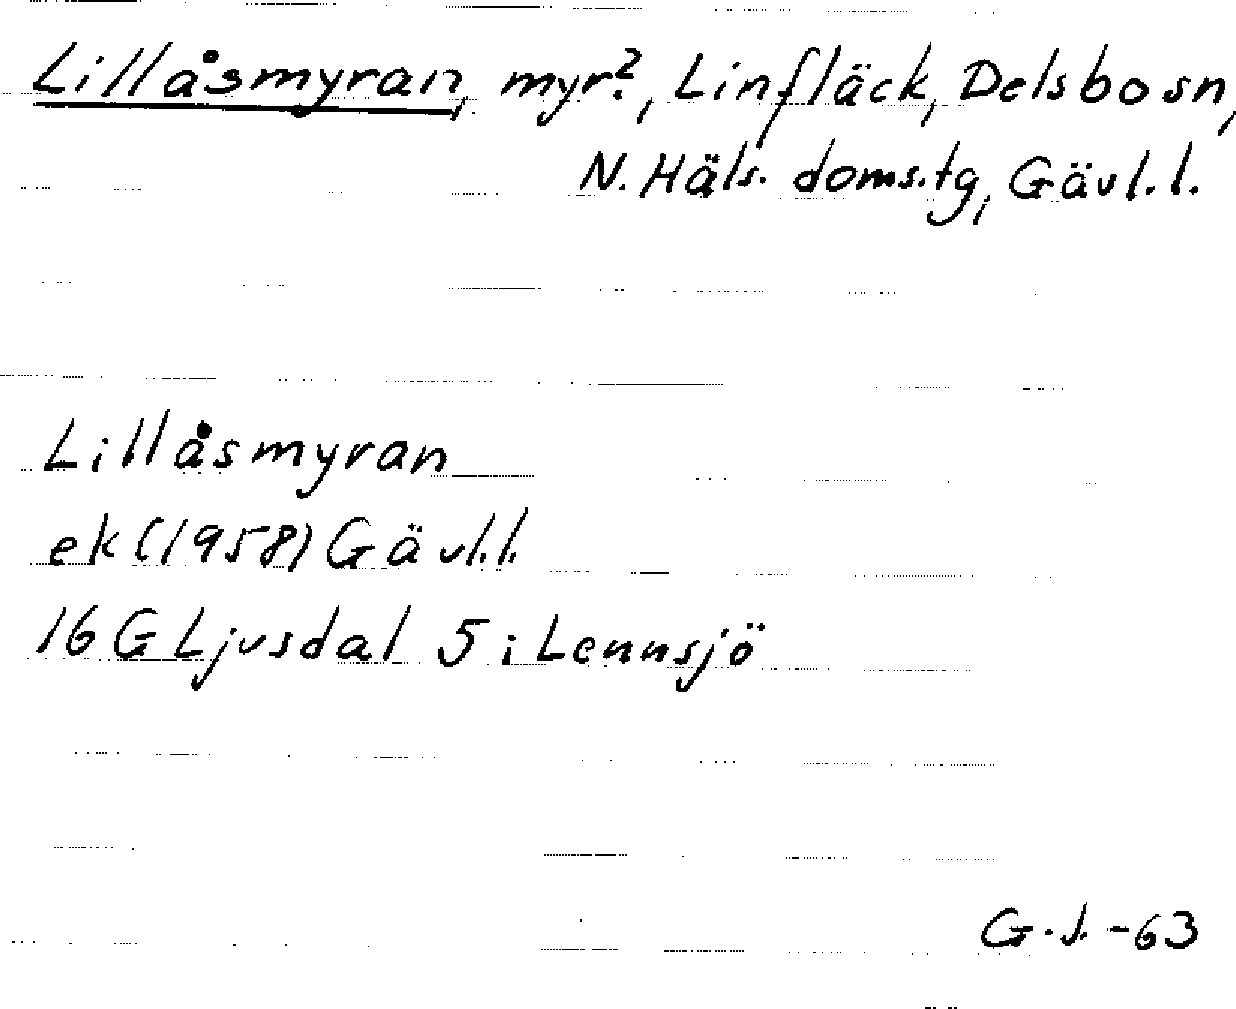 Lillåsmyran, myr?, Linfläck, Delsbo sn,
N. Häls. doms.tg, Gävl. l.
Lillåsmyran
ek (1958) Gävl.l.
16 G Ljusdal 5 i Lennsjö
G.J. -63